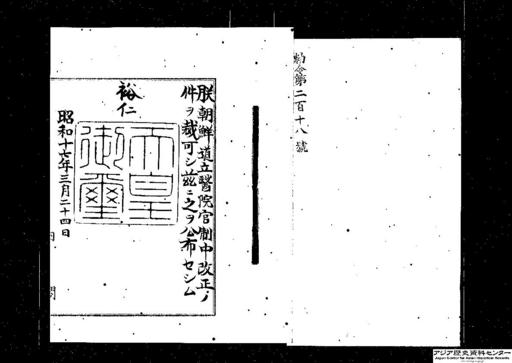 勅令第二百十八號
朕朝鮮道立醫院官制中改正ノ
件ヲ裁可シ茲ニ之ヲ公布セシム
裕仁
天皇
御璽
昭和十七年三月二十四日
内閣
アジア歴史資料センター
Japan Center for Asian Historical Records